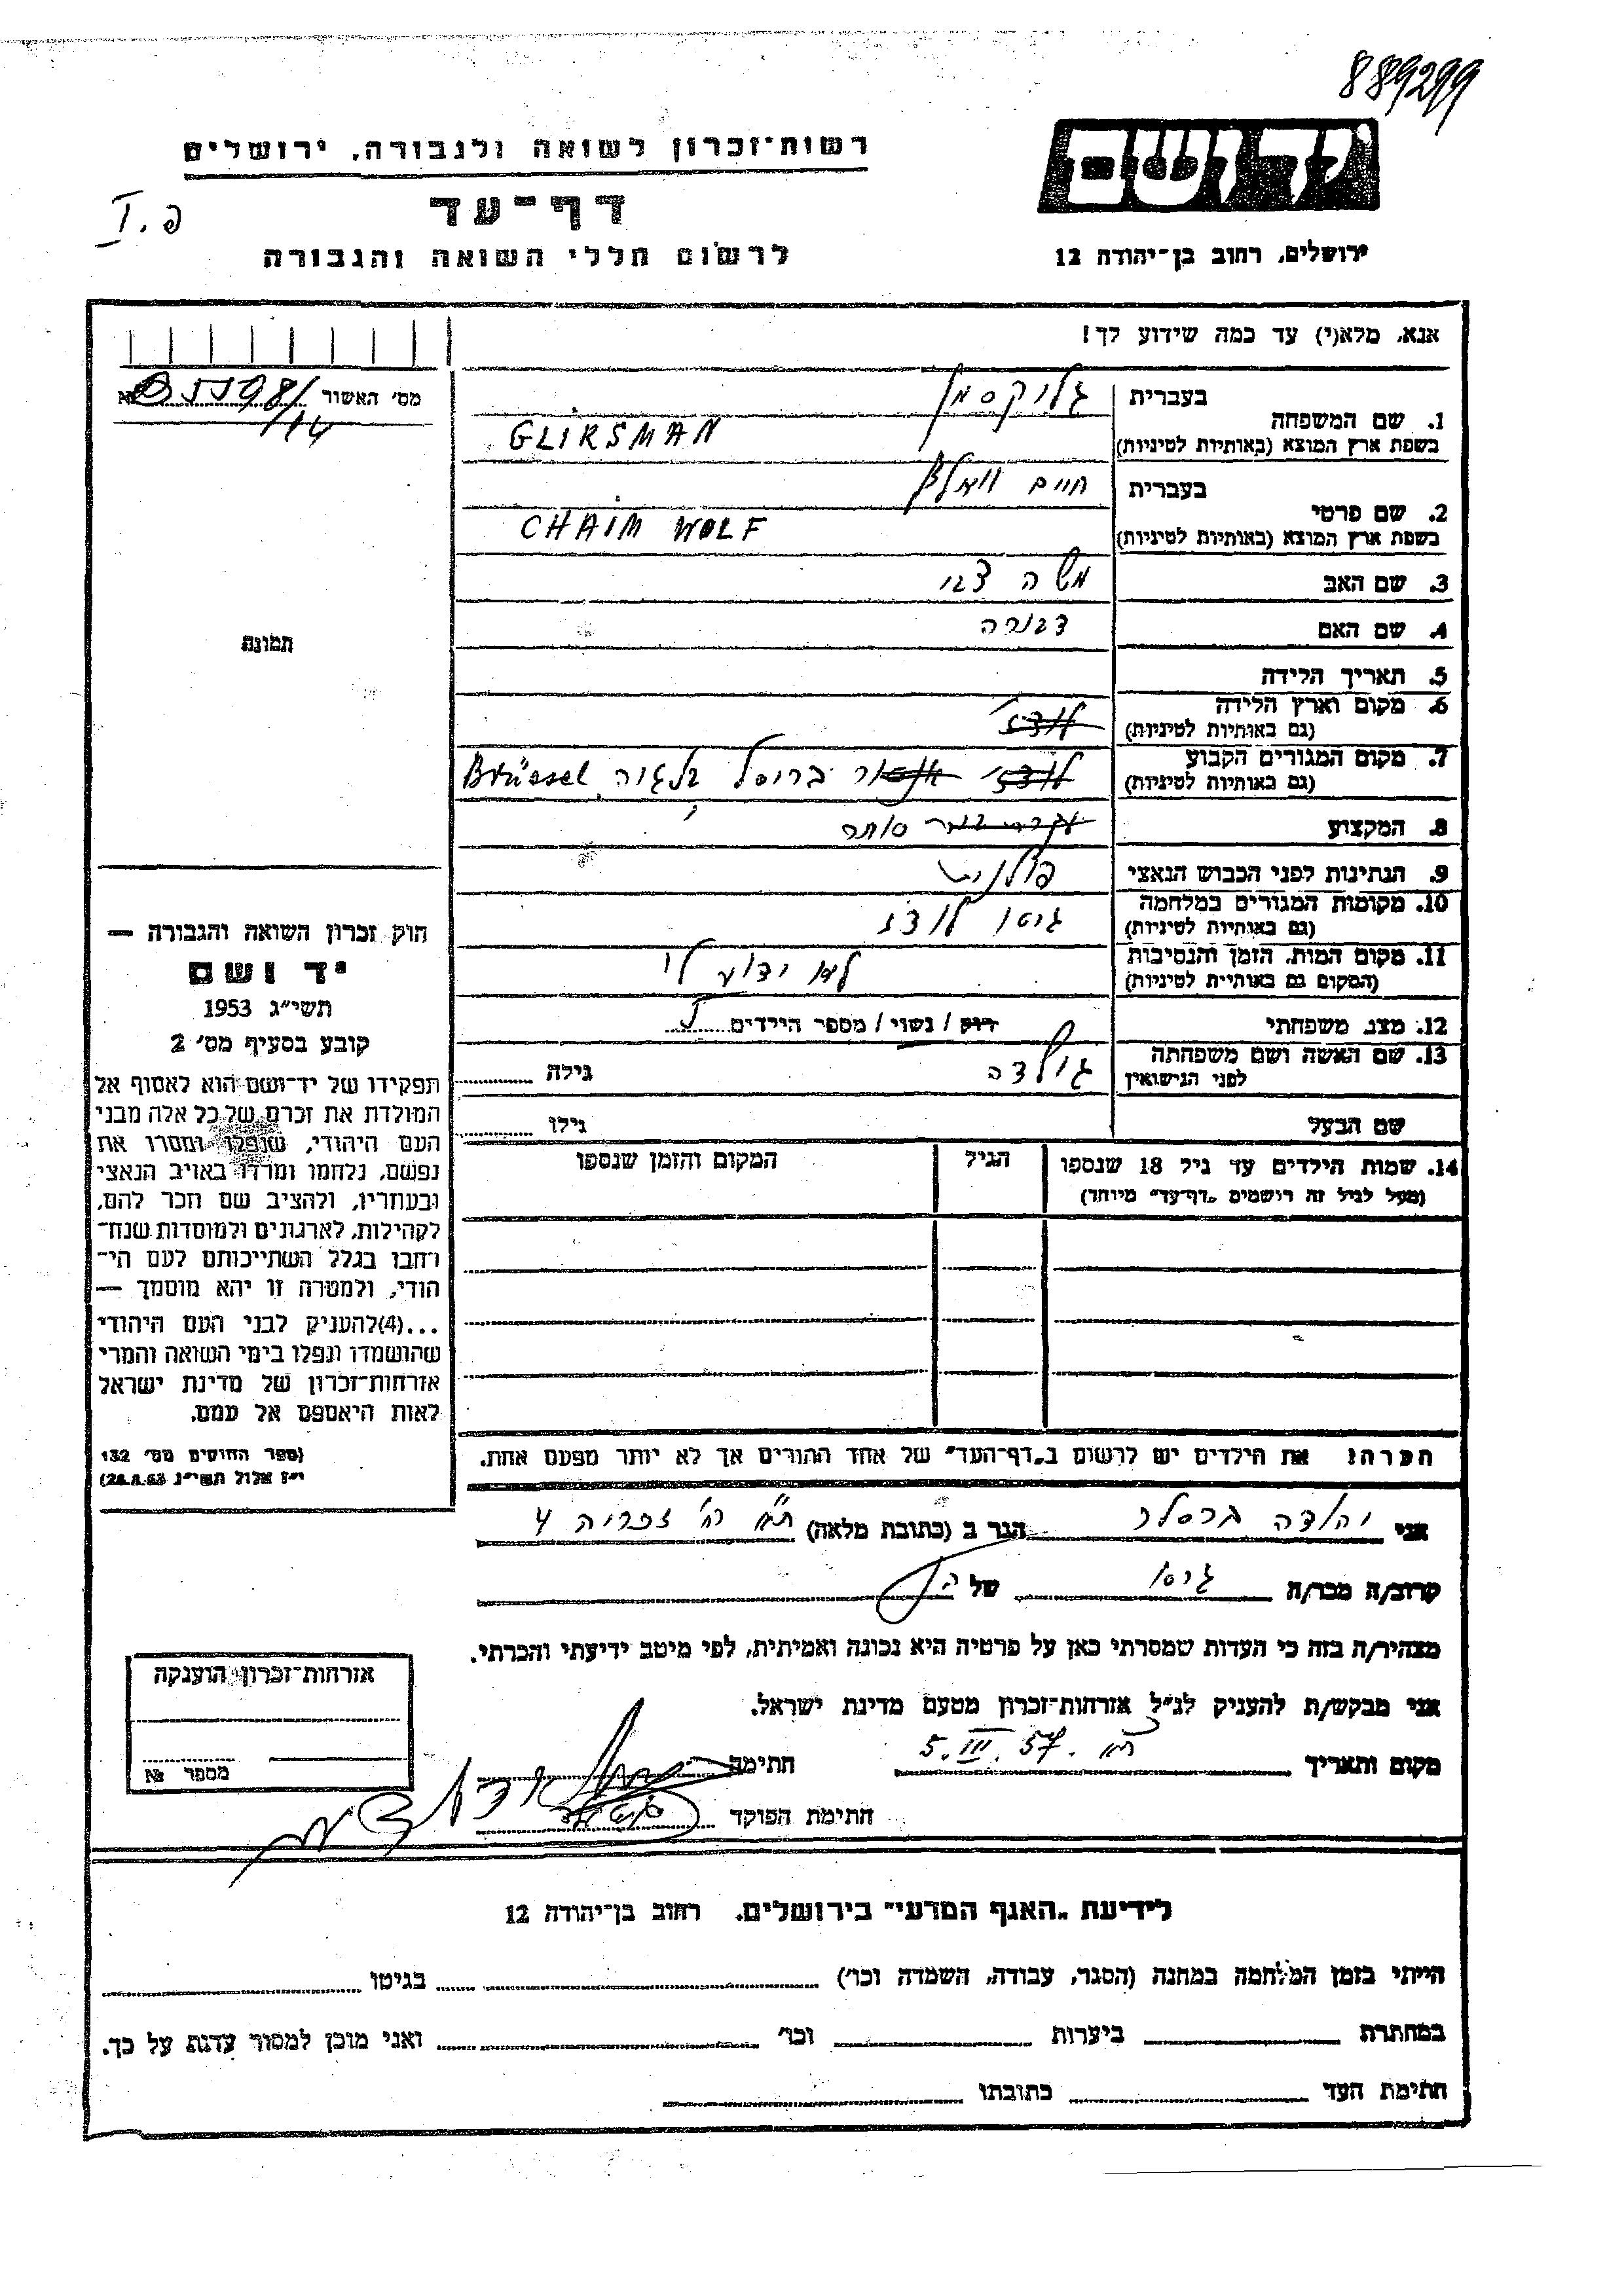 889299
רשות־זכרון לשואה ולגבורה, ירושלים
יד ושם
דף־עד
פ. I
לרשום חללי השואה והגבורה
ירושלים, רחוב בן־יהודה 12
אנא, מלא(י) עד כמה שידוע לך!
מס׳ האשור №
1. שם המשפחה
בעברית גליקסמן
בשפת ארץ המוצא (באותיות לטיניות) GLIKSMAN
2. שם פרטי
בעברית חיים וואלף
בשפת ארץ המוצא (באותיות לטיניות) CHAIM WOLF
3. שם האב משה צבי
4. שם האם דבורה
תמונה
5. תאריך הלידה
6. מקום וארץ הלידה לודז׳
(גם באותיות לטיניות)
7. מקום המגורים הקבוע לודז׳ בריסל בלגיה Brüssel
(גם באותיות לטיניות)
8. המקצוע סוחר
9. הנתינות לפני הכבוש הנאצי פולנית
10. מקומות המגורים במלחמה גיטו לודז
(גם באותיות לטיניות)
11. מקום המות, הזמן והנסיבות לא ידוע לי
(המקום גם באותיית לטיניות)
12. מצב משפחתי רוק / נשוי / מספר הילדים
13. שם האשה ושם משפחתה גולדה גילה
לפני הנישואין
שם הבעל גילו
14. שמות הילדים עד גיל 18 שנספו הגיל המקום והזמן שנספו
(מעל לגיל זה רושמים „דף־עד״ מיוחד)
חוק זכרון השואה והגבורה —
יד ושם
תשי״ג 1953
קובע בסעיף מס׳ 2
תפקידו של יד־ושם הוא לאסוף אל
המולדת את זכרם של כל אלה מבני
העם היהודי, שנפלו ומסרו את
נפשם, נלחמו ומרדו באויב הנאצי
ובעוזריו, ולהציב שם וזכר להם,
לקהילות, לארגונים ולמוסדות שנח־
רחבו בגלל השתייכותם לעם הי־
הודי, ולמטרה זו יהא מוסמך —
...(4)להעניק לבני העם היהודי
שהושמדו ונפלו בימי השואה והמרי
אזרחות־זכרון של מדינת ישראל
לאות היאספם אל עמם.
(ספר החוקים מס׳ 132
י״ז אלול תשי״ג 28.8.53)
הערה: את הילדים יש לרשום ב„דף־העד״ של אחד ההורים אך לא יותר מפעם אחת.
אני יהודה ברסלר הגר ב (כתובת מלאה) ת״א רח׳ זכריה 4
קרוב/ה מכר/ה גיסו של הנ״ל
מצהיר/ה בזה כי העדות שמסרתי כאן על פרטיה היא נכונה ואמיתית, לפי מיטב ידיעתי והכרתי.
אני מבקש/ת להעניק לנ״ל אזרחות־זכרון מטעם מדינת ישראל.
מקום ותאריך ת״א. 5.III.57 חתימה
חתימת הפוקד
אזרחות־זכרון הוענקה
מספר №
לידיעת „האגף המדעי״ בירושלים, רחוב בן־יהודה 12
הייתי בזמן המלחמה במחנה (הסגר, עבודה, השמדה וכו׳) בגיטו
במחתרת ביערות וכו׳ ואני מוכן למסור עדות על כך.
חתימת העד כתובתו